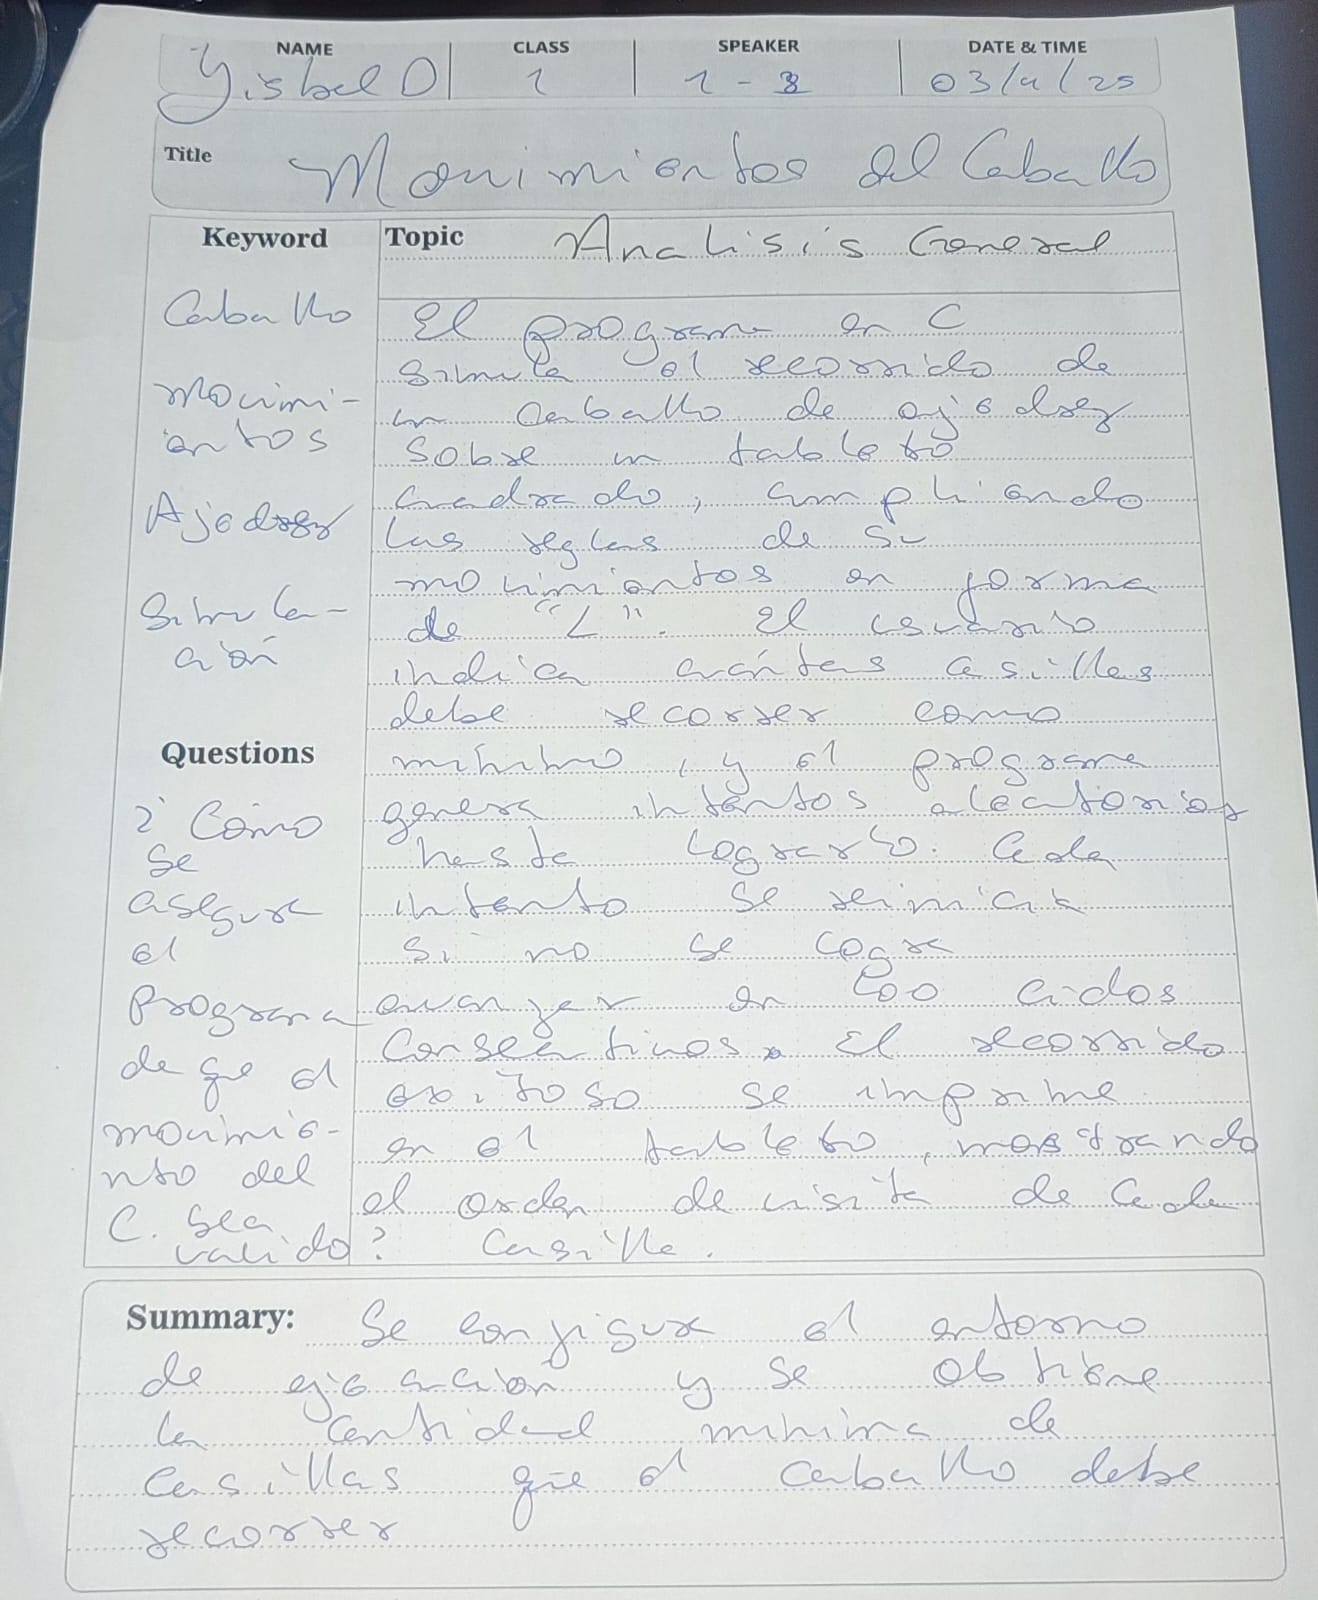 NAME CLASS SPEAKER DATE & TIME
Yisbel O 1 1 - 3 03/4/25
Title Movimientos del Caballo
Keyword
Caballo
Movimi-
entos
Ajedrez
Simula-
ción
Questions
¿Cómo
se
asegura
el
programa
de que el
movimie-
nto del
C. sea
valido?
Topic Analisis General
El programa en C
simula el recorrido de
un caballo de ajedrez
sobre un tablero
cuadrado, cumpliendo
las reglas de su
movimientos en forma
de "L". El usuario
indica cuántas casillas
debe recorrer como
mínimo, y el programa
genera intentos aleatorios
hasta lograrlo. Cada
intento se reinicia
si no se logra
avanzar en 200 ciclos
consecutivos. El recorrido
exitoso se imprime
en el tablero, mostrando
el orden de visita de cada
casilla.
Summary: Se configura el entorno
de ejecución y se obtiene
la cantidad minima de
casillas que el caballo debe
recorrer